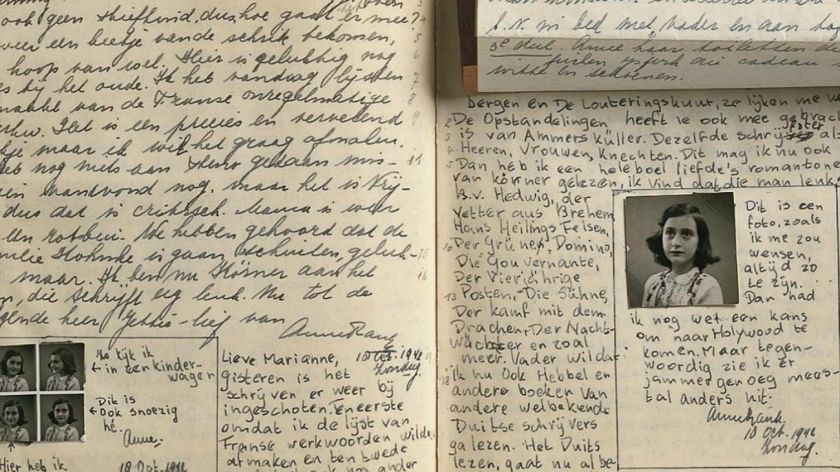 ook geen stiefkind, dus hoe gaat er mee
over een beetje van de schrik bekomen,
hoop van wel. Hier is gelukkig nog
es bij het oude. Ik heb vandaag lijsten
maakt van de Franse onregelmatige
Dat is een precies en vervelend
tje maar ik wil het graag afmalen.
eb nog niets aan gedaan mis-
en vanavond nog. maar het is Vrij-
dus dat is critisch. Mama is weer
We hebben gehoord dat de
milie is gaan schuilen, geluk-
maar. Ik ben nu Körner aan het
n, die schrijft erg leuk. Nu tot de
gende keer Jettie-lief van
Anne Frank
4
5
6
7
8
9
11
15
16
Zo kijk ik
in een kinder-
wagen
Dit is
Ook snoezig
hè.
Anne.
Hier heb ik
18 Oct. 1942
Lieve Marianne,
10 Oct. 1942
Zondag.
gisteren is het
schrijven er weer bij
ingeschoten. Eneerste
omdat ik de lijst van
Franse werkwoorden wilde
afmaken en ten twede
ik nog ander
b.v. in bed met vader en aan
3e deel. Anne haar
die cadeau
witte en schoenen.
bergen en De Louteringskuur, ze lijken me w
De Opstandelingen heeft ie ook mee gebrach
is van Ammers Küller. Dezelfde schrijfster
Heeren, Vrouwen, Knechten. Dit mag ik nu ook
Dan heb ik een heleboel liefde's romantone
van körner gelezen, ik vind dat die man leuk
B.v. Hedwig, der
Vetter aus Brehem
Hans Heilings Felsen,
Der Grüne Domino,
Die Gouvernante,
Der Vierjährige
Posten, Die Sühne,
Der Kampf mit dem
Drachen, Der Nacht-
wächter en zoal
meer. Vader wil dat
ik nu Ook Hebbel en
andere boeken van
andere welbekende
Duitse schrijvers
ga lezen. Het Duits
lezen, gaat nu al be-
Dit is een
foto, zoals
ik me zou
wensen,
altijd zo
te zijn.
Dan had
ik nog wel een kans
om naar Holywood te
komen. Maar tegen-
woordig zie ik er
jammer genoeg mees-
tal anders uit.
Anne Frank.
10 Oct. 1942
Zondag.